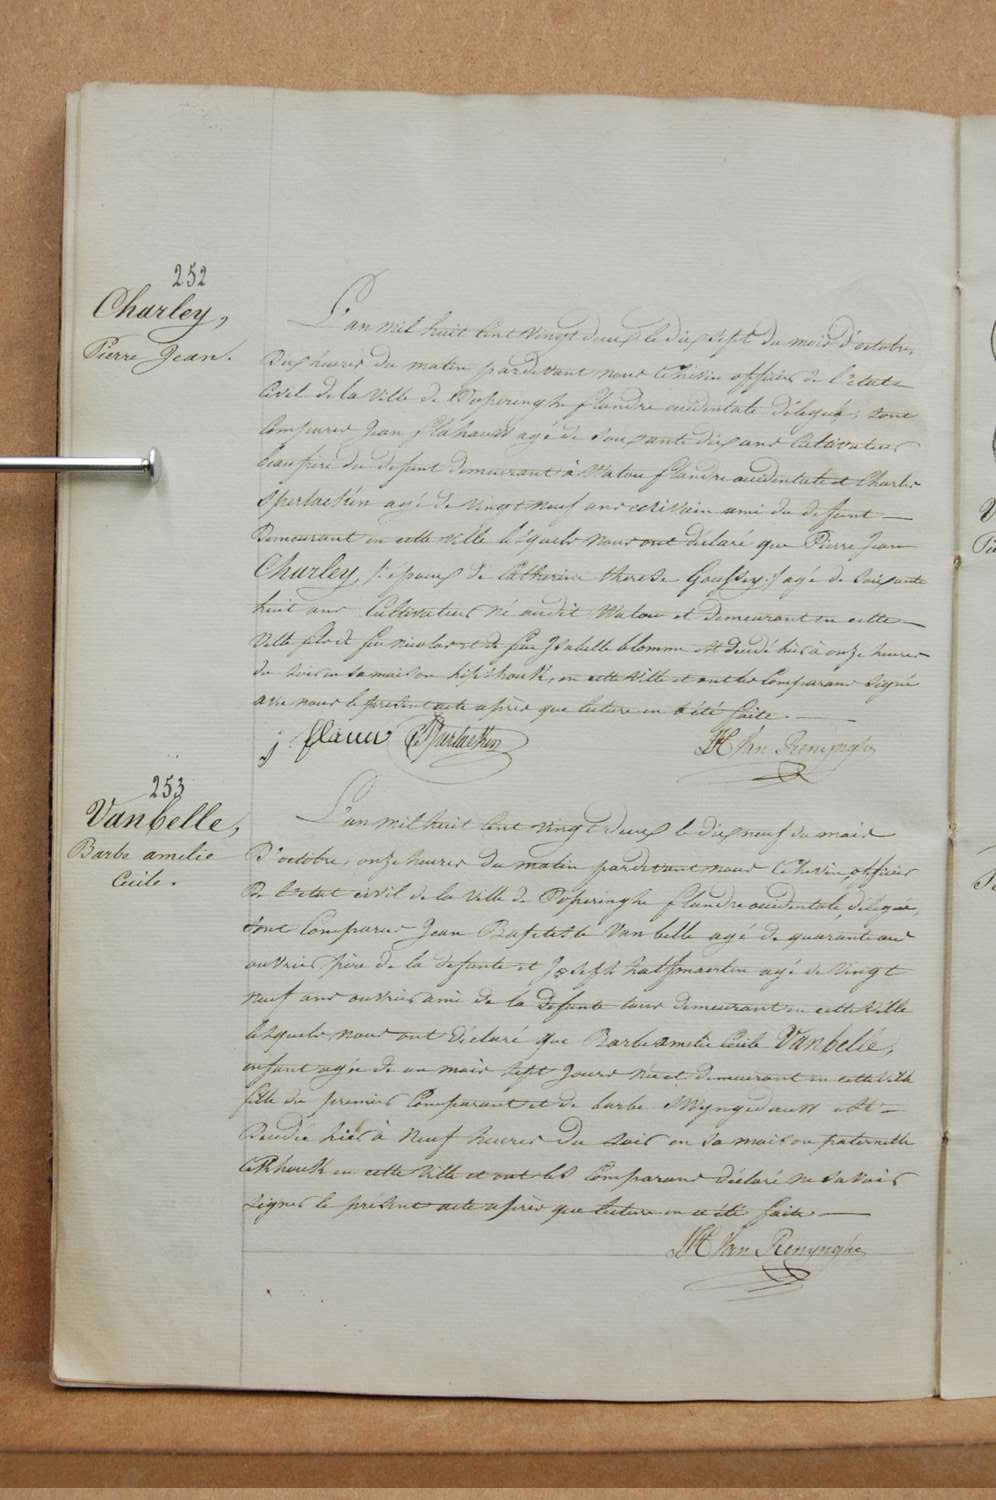 252
Charley,
Pierre Jean.
L'an mil huit cent vingt deux le dix sept du mois d'octobre,
Dix heures du matin pardevant nous Echevin officier de l'état
Civil de la Ville de Poperinghe flandre occidentale délégué, sont
Comparus Jean flahauw agé de soixante dix ans Cultivateur
beaufrère du defunt demeurant à Watou flandre occidentale et Charles
agé de vingt neuf ans ecrivain ami du defunt
Demeurant en cette ville lesquels nous ont déclaré que Pierre Jean
Charley, /: époux de Catherine therese :/ agé de soixante
huit ans Cultivateur né audit Watou et demeurant en cette
Ville fils de feu nicolas et de feue Isabelle blomme est decedé hier à onze heures
du soir en sa maison en cette ville et ont les Comparans signé
avec nous le present acte après que lecture en a été faite.
j flauw
DH Van Renynghe
253
Vanbelle,
Barbe amelie
Cecile.
L'an mil huit Cent vingt deux le dix neuf du mois
D'octobre, onze heures du matin pardevant nous Echevin officier
De l'etat civil de la Ville de Poperinghe flandre occidentale, délégué,
sont Comparus Jean Baptiste Van belle agé de quarante ans
ouvrier père de la defunte et Joseph agé de Vingt
neuf ans ouvrier ami de la defunte tous demeurant en cette Ville
lesquels nous ont déclaré que Barbe amelie Cecile Vanbelle,
enfant agée de un mois sept jours née et demeurant en cette ville
fille du premier Comparant et de barbe Wyngedauw est
Decedée hier à neuf heures du soir en sa maison paternelle
en cette ville et ont les Comparans déclaré ne savoir
signer le present acte après que lecture en a été faite.
DH Van Renynghe